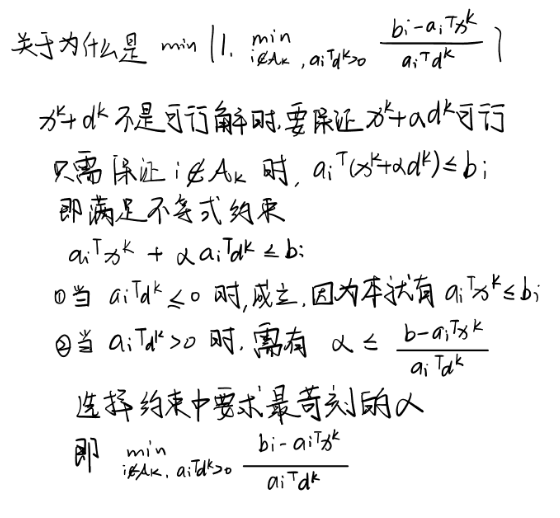 关于为什么是 min {1, min_{i∉A_k, a_i^T d^k>0} (b_i - a_i^T x^k)/(a_i^T d^k)}
x^k+d^k 不是可行解时,要保证 x^k+αd^k 可行
只需保证 i∉A_k 时, a_i^T(x^k+αd^k) ≤ b_i
即满足不等式约束
a_i^T x^k + α a_i^T d^k ≤ b_i
①当 a_i^T d^k ≤ 0 时,成立,因为本就有 a_i^T x^k ≤ b_i
②当 a_i^T d^k > 0 时,需有 α ≤ (b - a_i^T x^k)/(a_i^T d^k)
选择约束中要求最苛刻的 α
即 min_{i∉A_k, a_i^T d^k>0} (b_i - a_i^T x^k)/(a_i^T d^k)